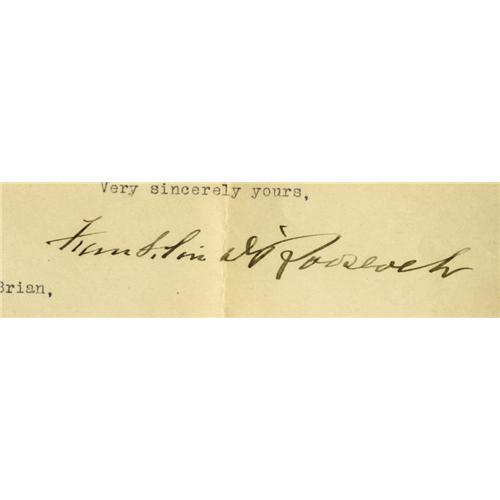 Very sincerely yours,
Franklin D Roosevelt
Brian,